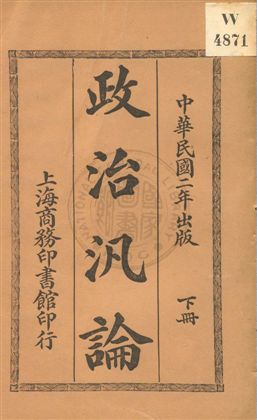 W
4871
中華民國二年出版
下冊
政治汎論
上海商務印書館印行